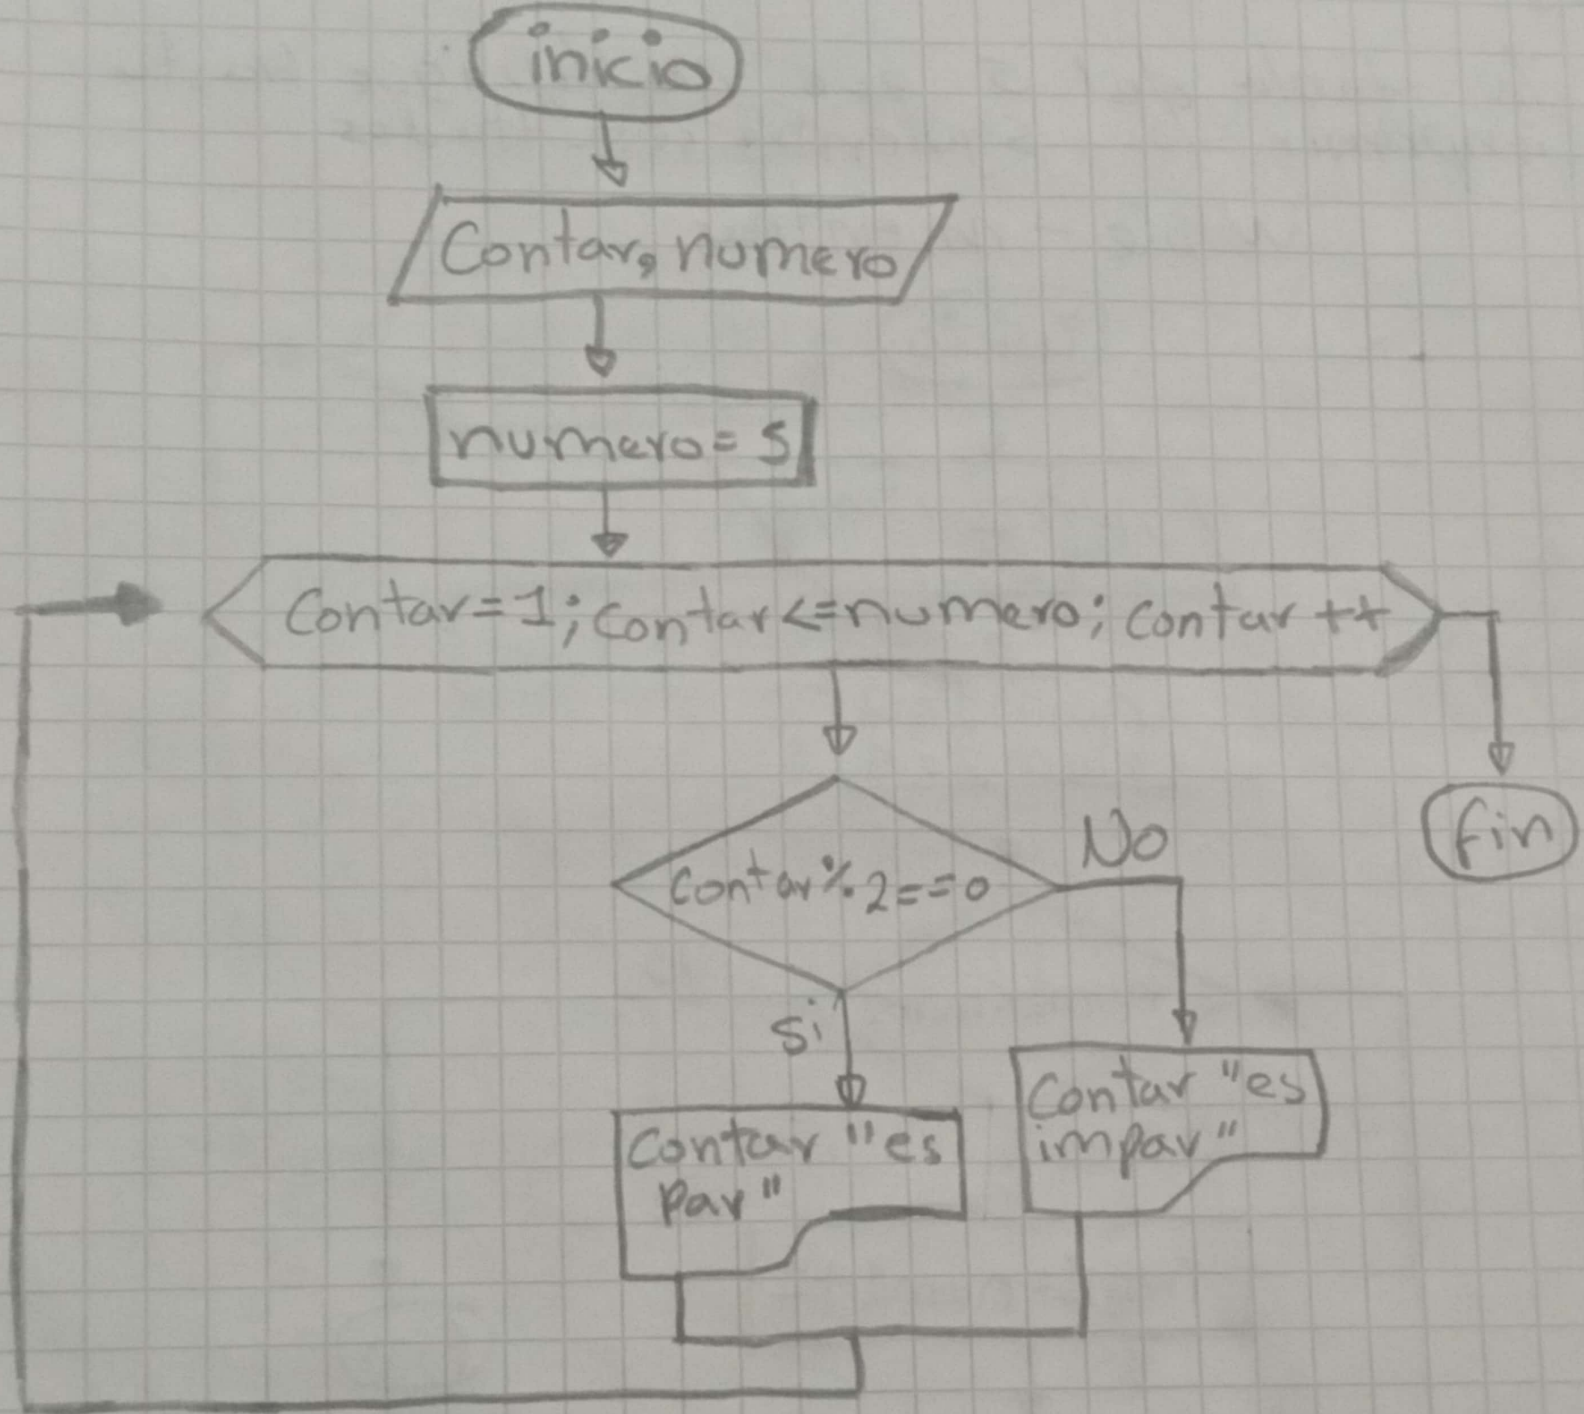 inicio
Contar, numero
numero = 5
Contar=1; contar<=numero; contar ++
Contar % 2 == 0
No
fin
Si
Contar "es
impar"
Contar "es
Par"